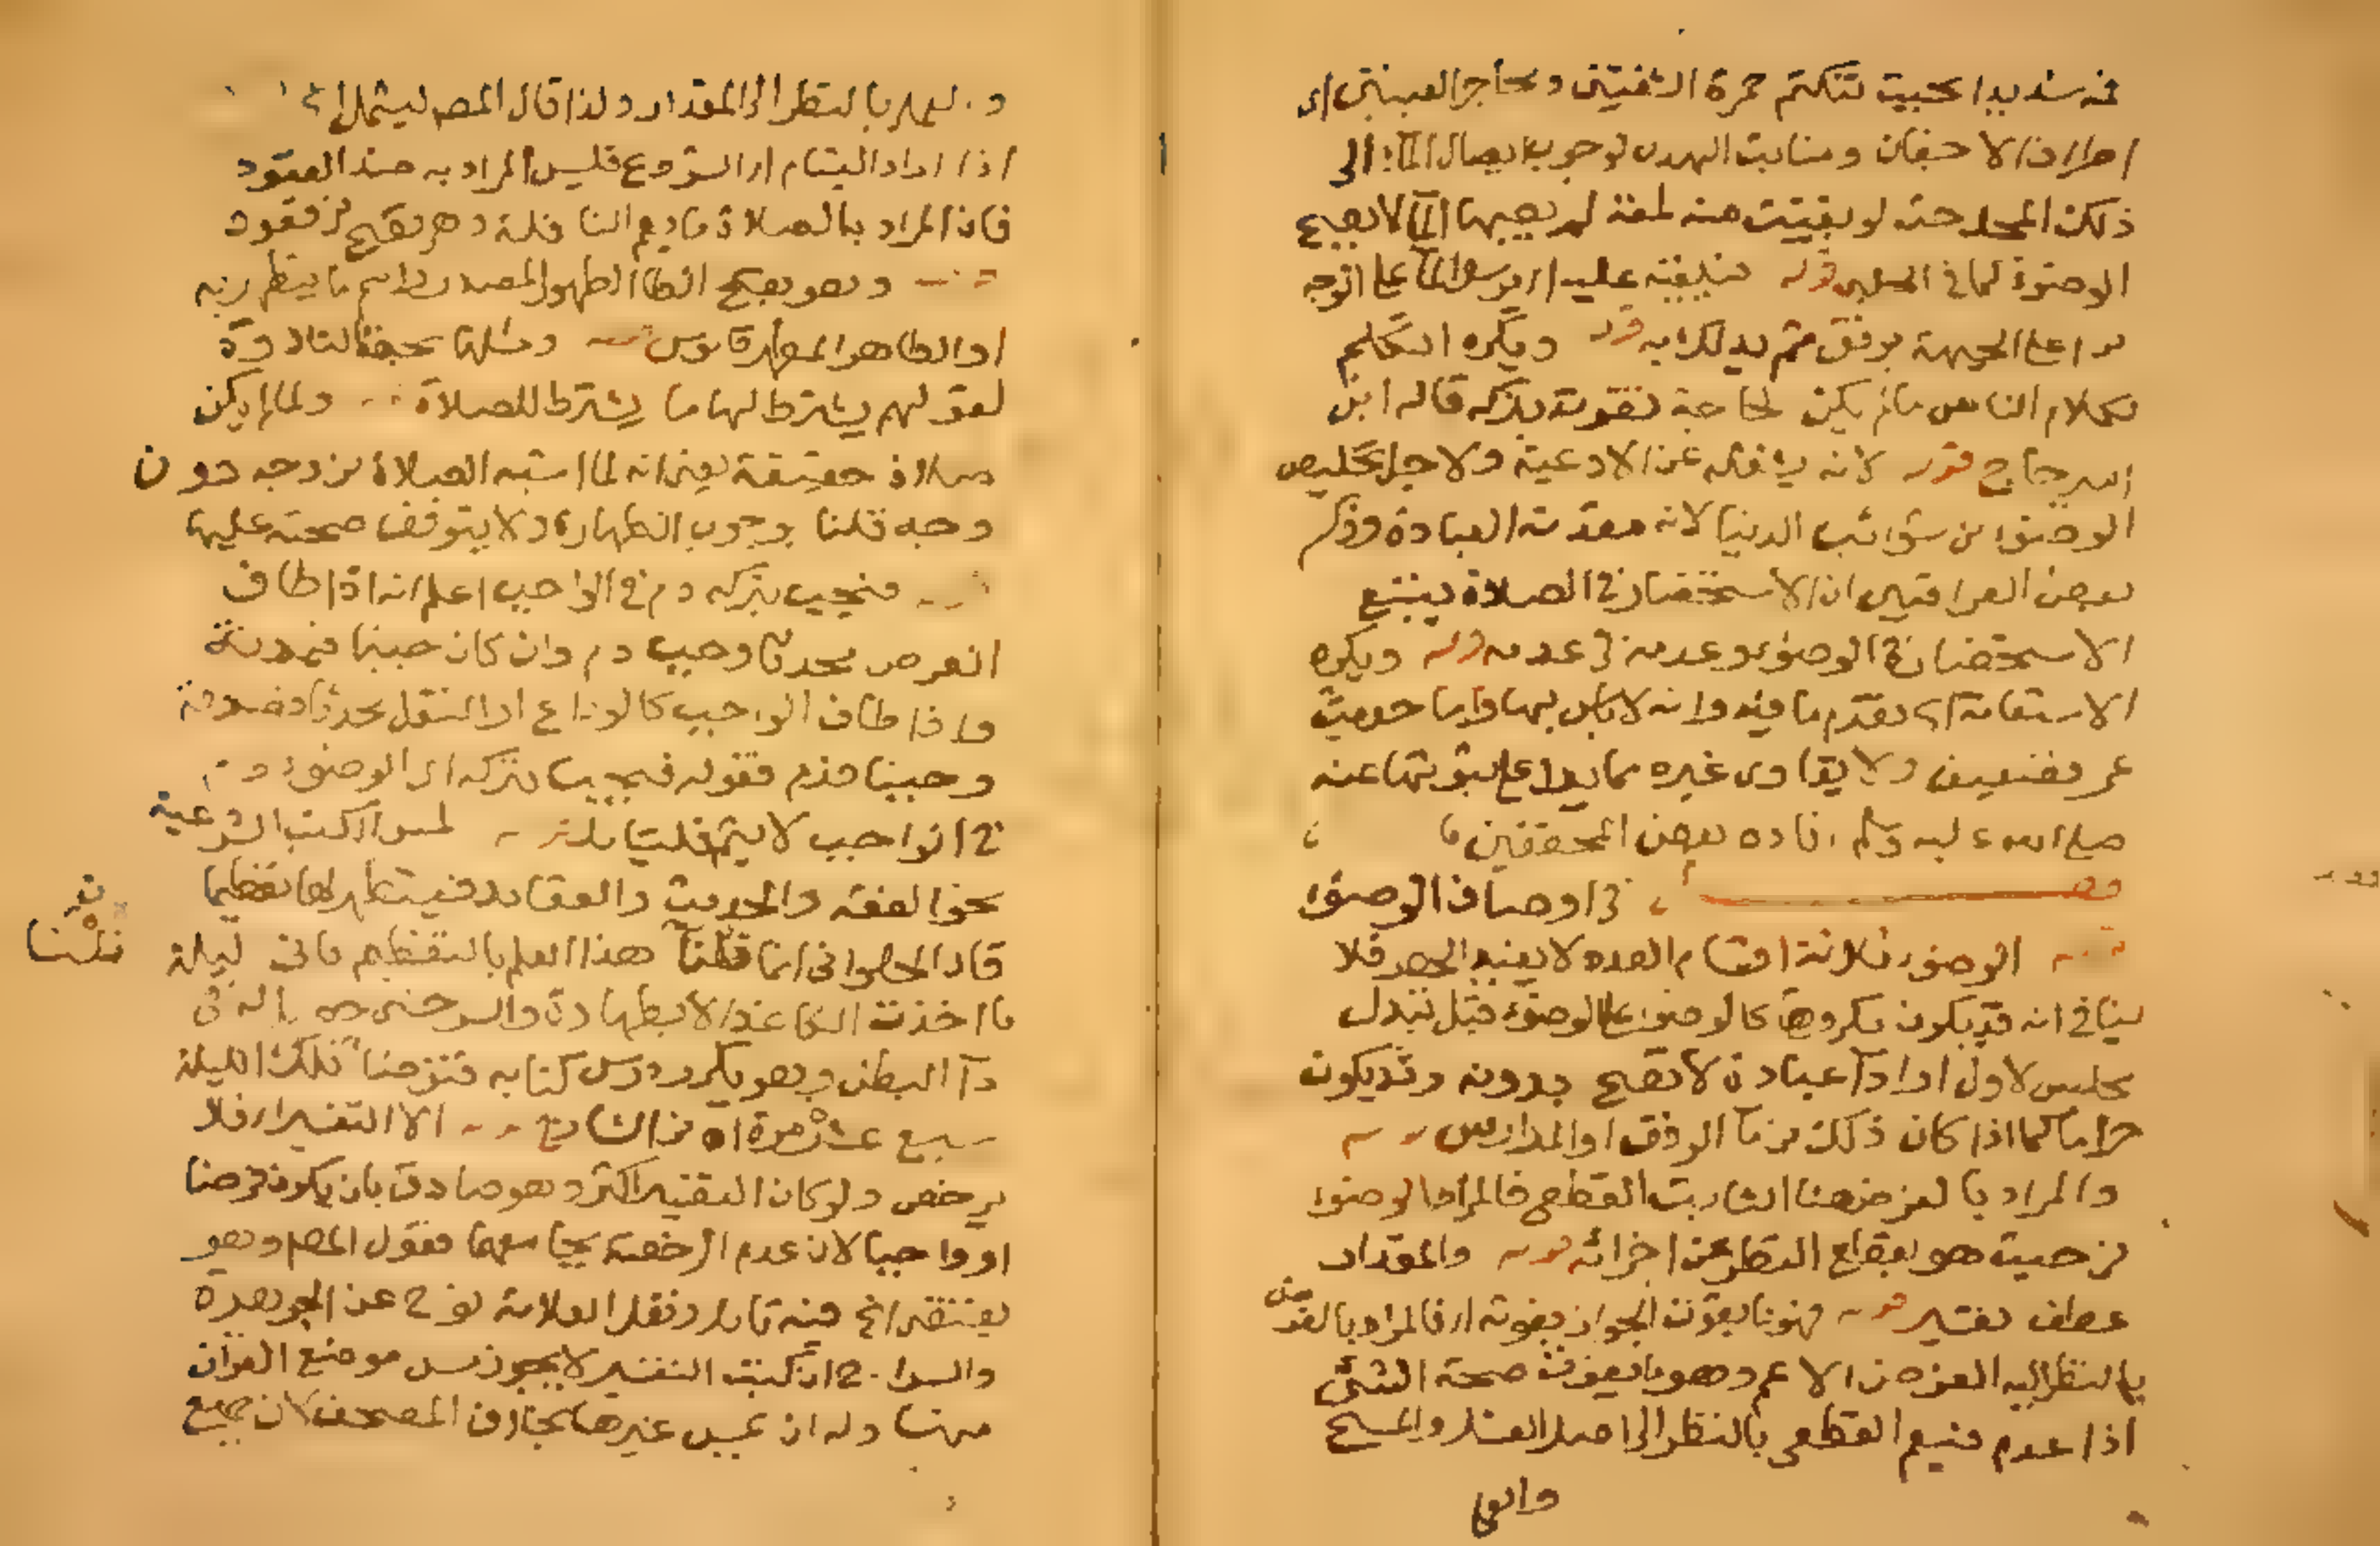 فمه شديدا بحيث تنكتم حمرة الشفتين ومحاجر العينين اى
اطراف الاجفان ومنابت الهدب لوجوب ايصال الماء الى
ذلك المحل حتى لو بقيت منه لمعة لم يصبها الماء لا يصح
الوضوء كما فى الحلبى قوله عليه اى يرسل الماء على الوجه
من اعلى الجبهة برفق ثم يدلك به قوله ويكره التكلم
بكلام الناس مالم يكن لحاجة تفوته بتركه قاله ابن
امير حاج قوله لانه يشغله عن الادعية ولاجل تخليص
الوضوء من شوائب الدنيا لانه مقدمة العبادة وذكر
بعض العرافين ان الاستحضار فى الصلاة يتبع
الاستحضار فى الوضوء وعدمه فى عدمه قوله ويكره
الاستعانة اى تقدم ما فيه وانه لا باس بها واما حديث
عمر فضعيف ولا يقاوى غيره مما يدل على ثبوتها عنه
صلى الله عليه وسلم افاده بعض المحققين
فصل فى اوصاف الوضوء
الوضوء ثلاثة اقسام العدد لا يفيد الحصر فلا
ينافى انه قد يكون مكروها كالوضوء على الوضوء قبل تبدل
مجلس لاول او ادآ عبادة لا تصح بدونه وقد يكون
حراما كما اذا كان ذلك من مآ الوقف او المدارس
والمراد بالفرض هنا الثابت القطعى فالمراد الوضوء
من حيث هو بقطع النظر عن اجزائه قوله والمقدار
عطف تفسير قوله فهو ما يفوت الجواز بفوته اى فالمراد بالفرض
بالنظر اليه الفرض الاعم وهو ما يفوت صحة الشئ
اذا عدم فيعم القطعى بالنظر الى اصل الغسل والمسح
والعملى بالنظر الى المقدار ولذا قال المصـ ليشمل
اذا اراد القيام اى الشروع فليس المراد به ضد القعود
فان المراد بالصلاة ما يعم النافلة وهى تصح من قعود
وهو بفتح الطا الطهور المصدر واسم ما يتطهر به
او الطاهر المطهر قاموس ومثلها سجدة التلاوة
لقولهم يشترط لها ما يشترط للصلاة ولما لم يكن
صلاة حقيقة يعنى انه لما اشبه الصلاة من وجه دون
وجه قلنا بوجوب الطهارة ولا يتوقف صحته عليها
فيجب بتركه دم فى الواجب اعلم انه اذا طاف
الفرض محدثا وجب دم وان كان جنبا فبدنة
واذا طاف الواجب كالوداع او النفل محدثا فصدقة
وجنبا فدم فقوله فيجب بتركه اى الوضوء
فى الواجب لا يتم فليتامل لمس الكتب الشرعية
نحو الفقه والحديث والعقائد فيتطهر لها تعظيما
قال الحلوانى انما نلنا هذا العلم بالتعظيم فانى
ما اخذت الكاغد الا بطهارة والسرخسى حصل له فى ليلة
دآ البطن وهو يكرر درس كتابه فتوضا تلك الليلة
سبع عشرة مرة الا التفسير اى فلا
يرخص ولو كان التفسير اكثر وهو صادق بان يكون فرضا
او واجبا لان عدم الرخصة يجامعهما فقول المصـ وهو
يقتضى الخ فيه تامل ونقل العلامة نوح عن الجوهرة
والسراج ان كتب التفسير لا يجوز مس موضع القران
منها وله ان يمس غيرها بخلاف المصحف لان جميع